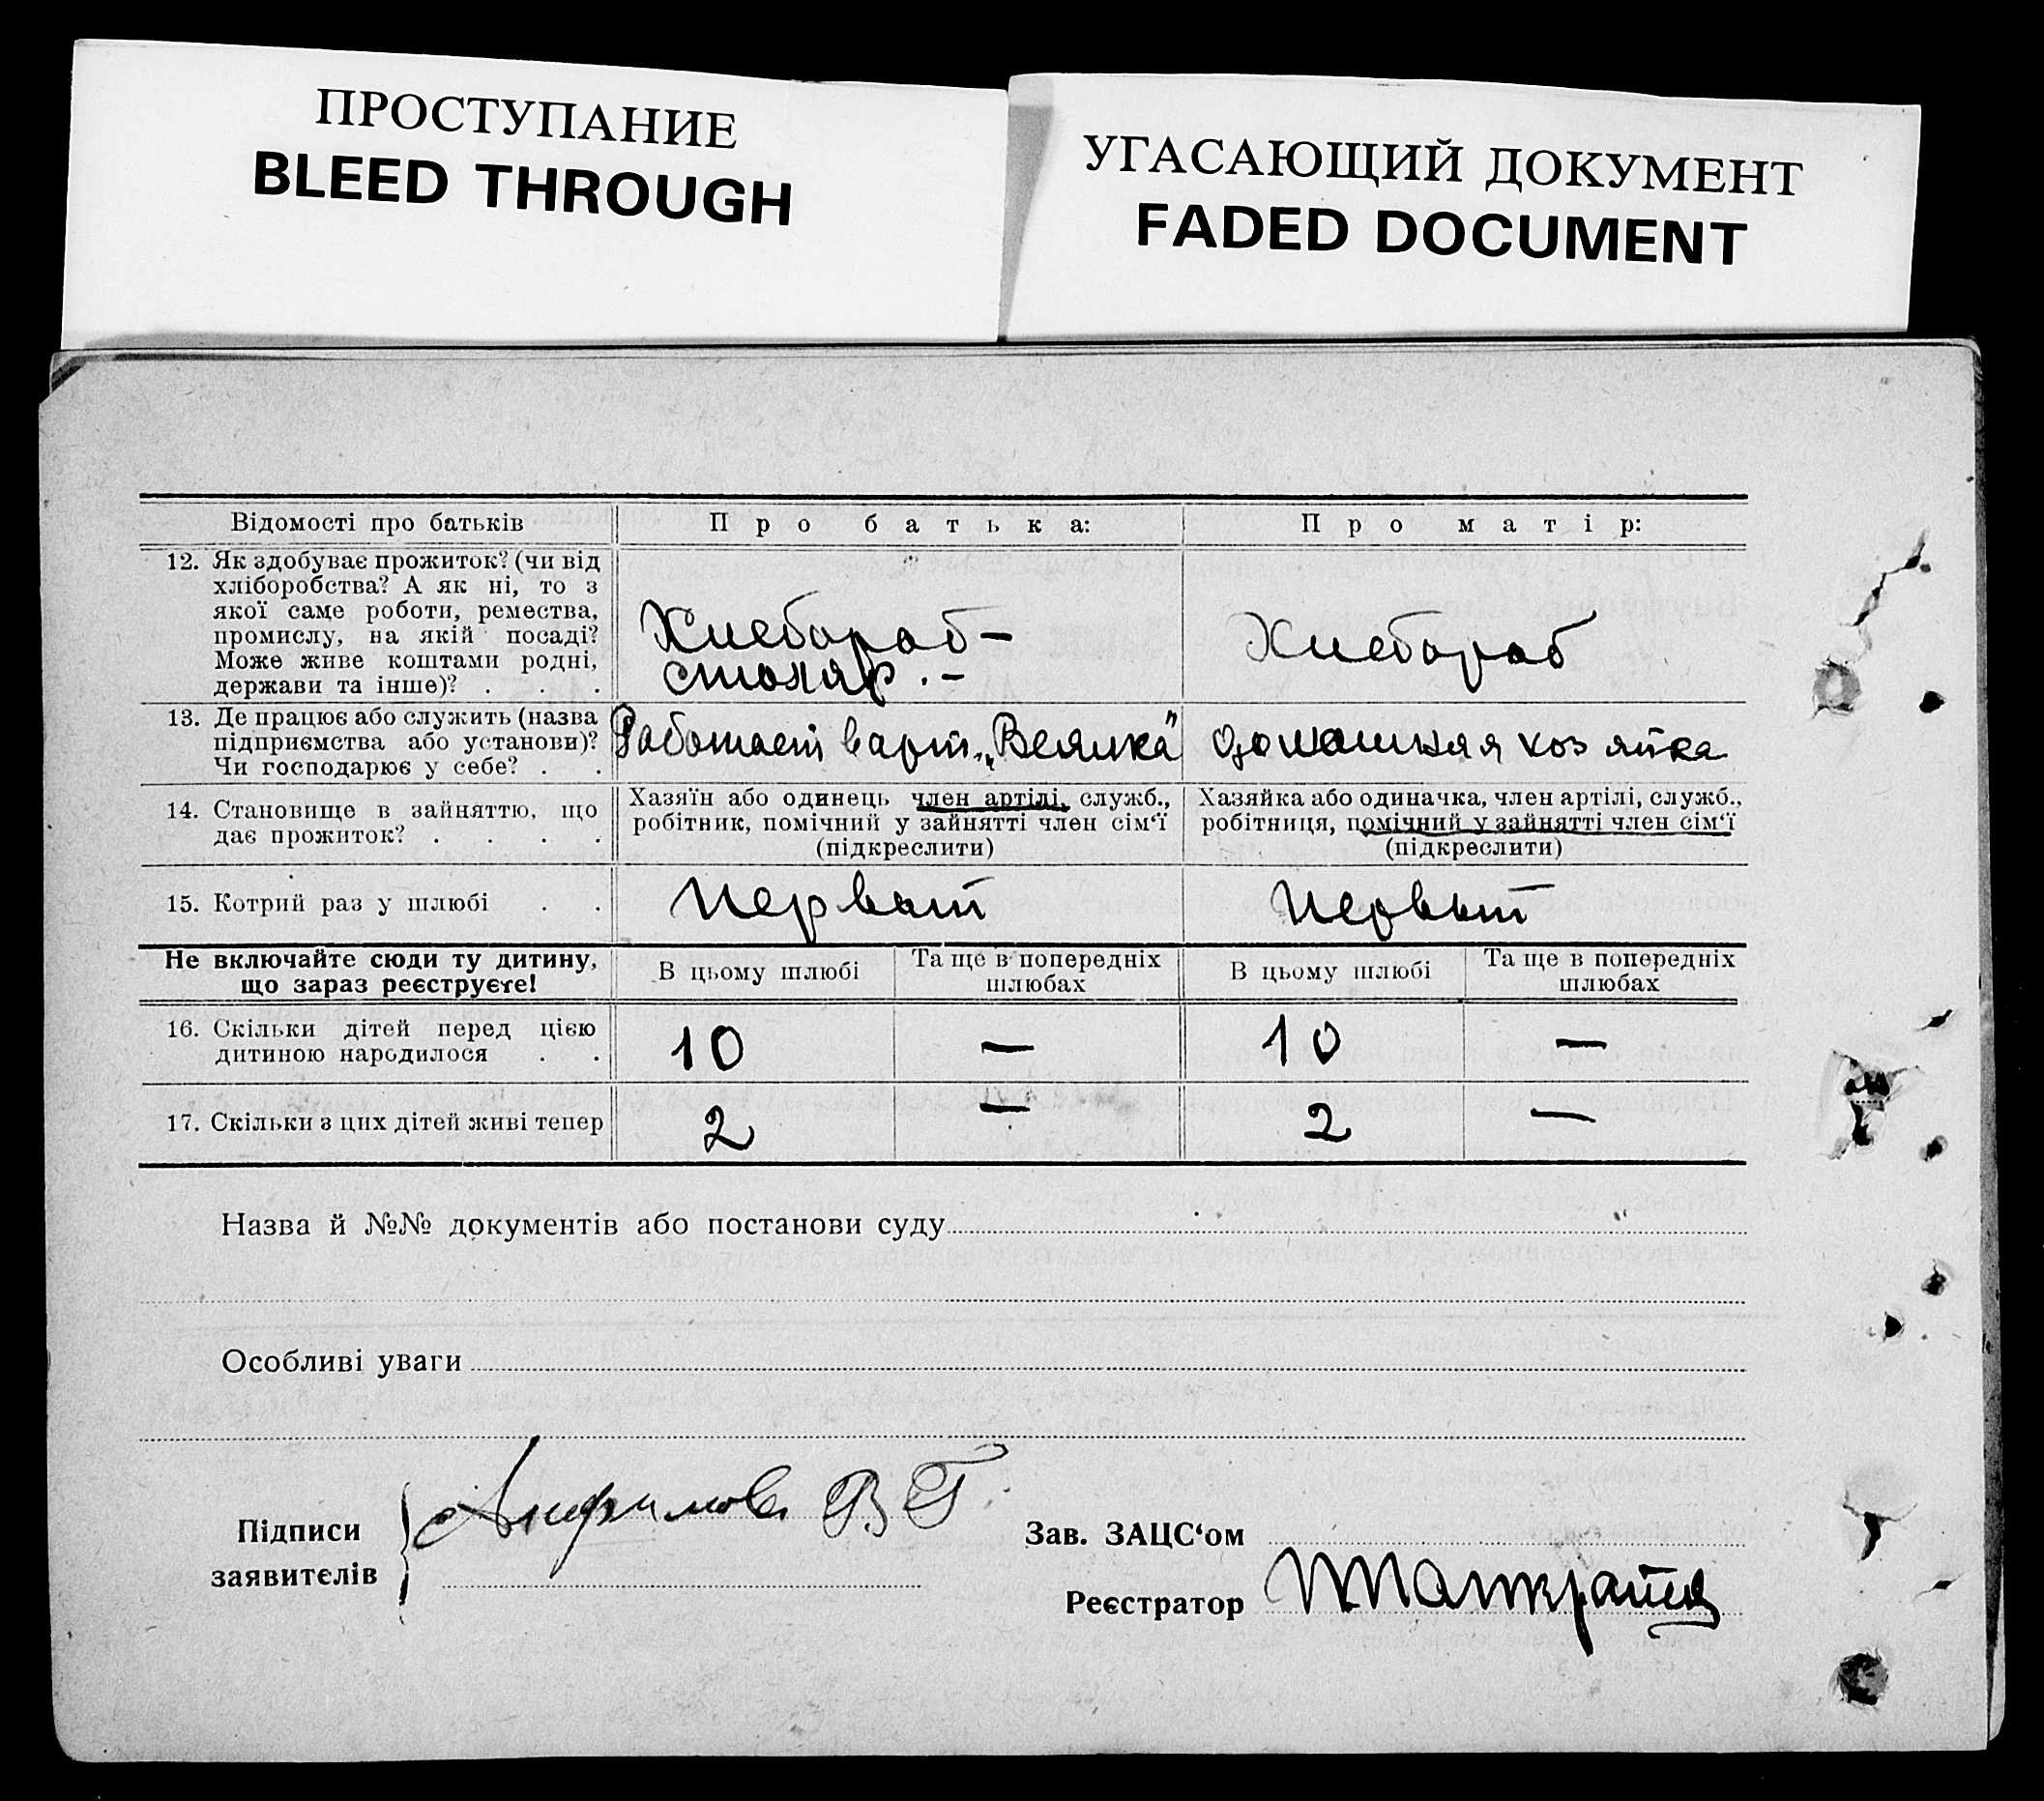 ПРОСТУПАНИЕ
BLEED THROUGH
УГАСАЮЩИЙ ДОКУМЕНТ
FADED DOCUMENT
Відомості про батьків
Про батька:
Про матір:
12. Як здобуває прожиток? (чи від
хліборобства? А як ні, то з
якої саме роботи, ремества,
промислу, на якій посаді?
Може живе коштами родні,
держави та інше)? . . .
Хлебороб –
столяр. –
Хлебороб
13. Де працює або служить (назва
підприємства або установи)?
Чи господарює у себе? . .
Работает в арт. „Веялка"
домашняя хозяйка
14. Становище в зайняттю, що
дає прожиток? . . . .
Хазяїн або одинець член артілі, служб.,
робітник, помічний у зайнятті член сім‘ї
(підкреслити)
Хазяйка або одиначка, член артілі, служб.,
робітниця, помічний у зайнятті член сім‘ї
(підкреслити)
15. Котрий раз у шлюбі . .
Первый
Первый
Не включайте сюди ту дитину,
що зараз реєструєте!
В цьому шлюбі
Та ще в попередніх
шлюбах
В цьому шлюбі
Та ще в попередніх
шлюбах
16. Скільки дітей перед цією
дитиною народилося . .
10
—
10
—
17. Скільки з цих дітей живі тепер
2
—
2
—
Назва й №№ документів або постанови суду
Особливі уваги
Підписи
заявителів
Анфимов В Г.
Зав. ЗАЦС‘ом
Реєстратор